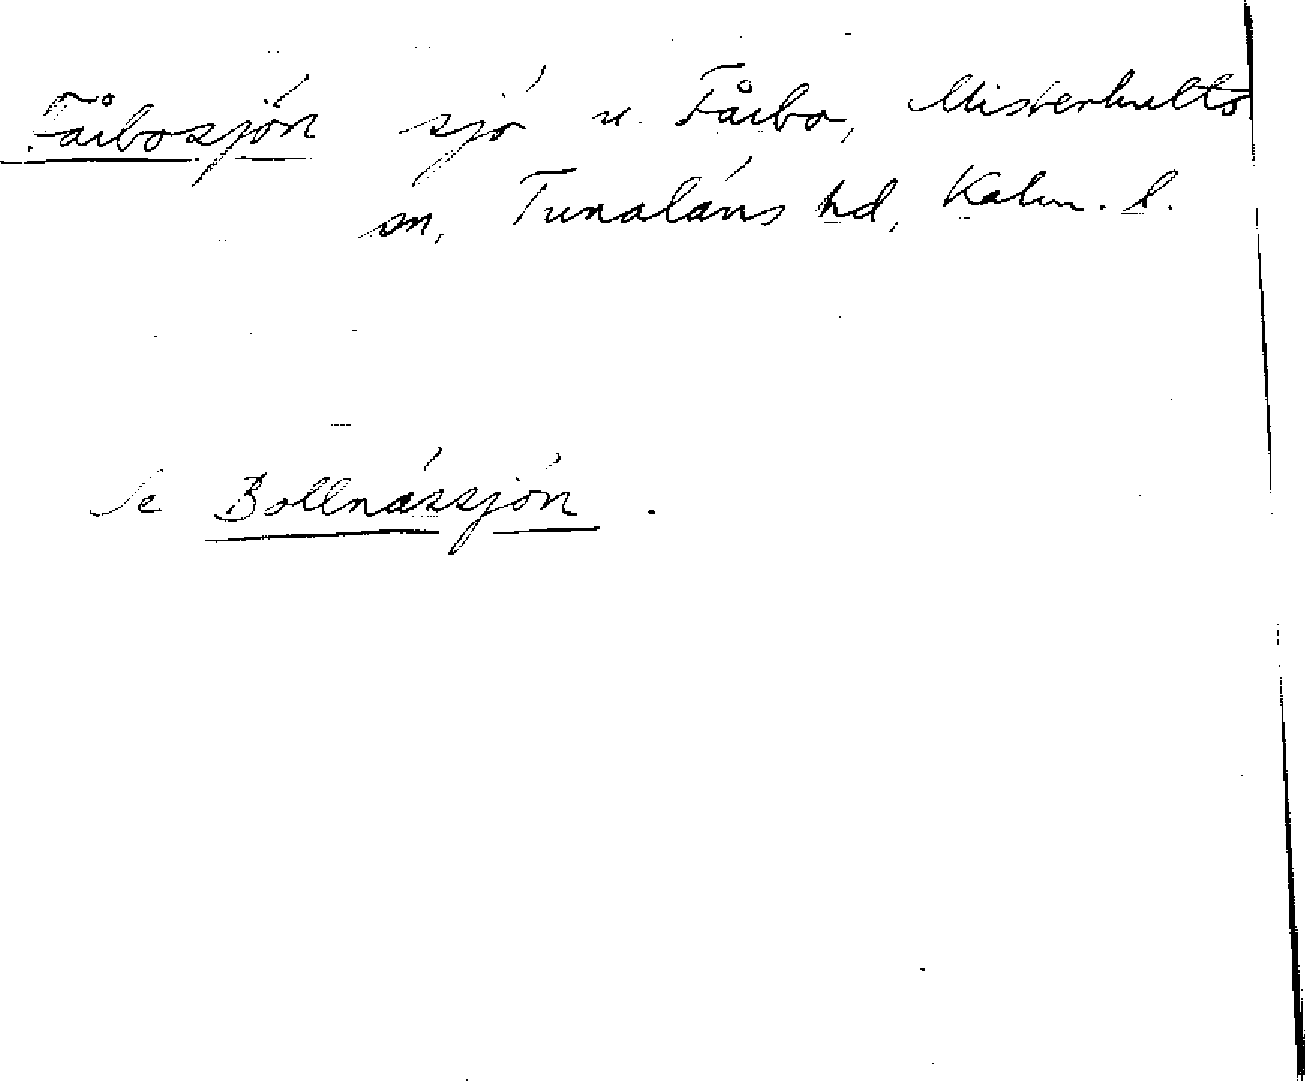 Fårbosjön sjö n. Fårbo, Misterhults
sn, Tunaläns hd, Kalm. l.
Se Bollnässjön.